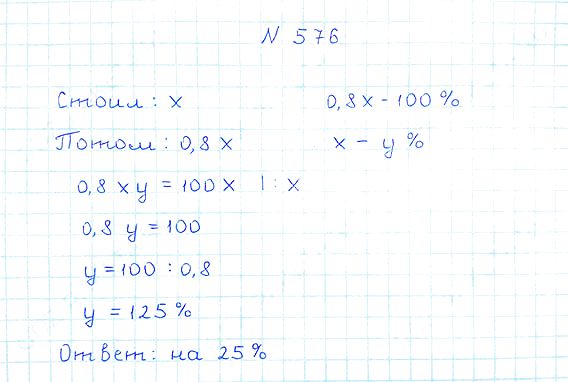 N 576
Стоил: x 0,8x - 100%
Потом: 0,8x x - y%
0,8xy = 100x |: x
0,8y = 100
y = 100 : 0,8
y = 125%
Ответ: на 25%